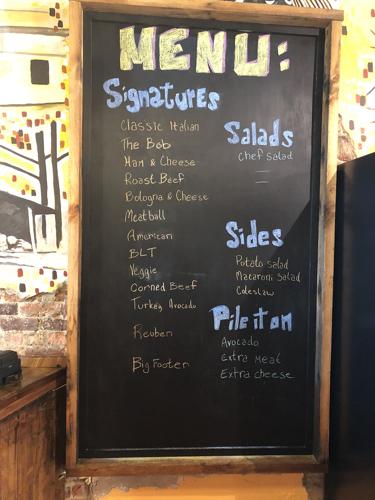 MENU:
Signatures
Classic Italian
The Bob
Ham & Cheese
Roast Beef
Bologna & Cheese
Meatball
American
BLT
Veggie
Corned Beef
Turkey Avocado
Reuben
Big Footer
Salads
Chef Salad
Sides
Potato Salad
Macaroni Salad
Coleslaw
Pile it on
Avocado
Extra Meat
Extra cheese